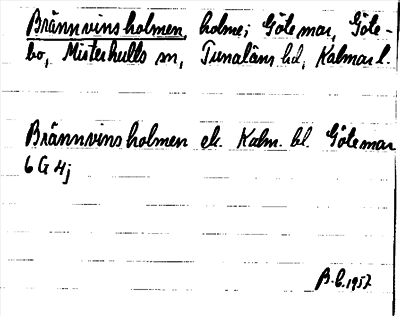 Brännvinsholmen, holme i Götemar, Göte-
bo, Misterhults sn, Tunaläns hd, Kalmar l.
Brännvinsholmen ek. Kalm. bl. Götemar
6 G 4j
B.C. 1957